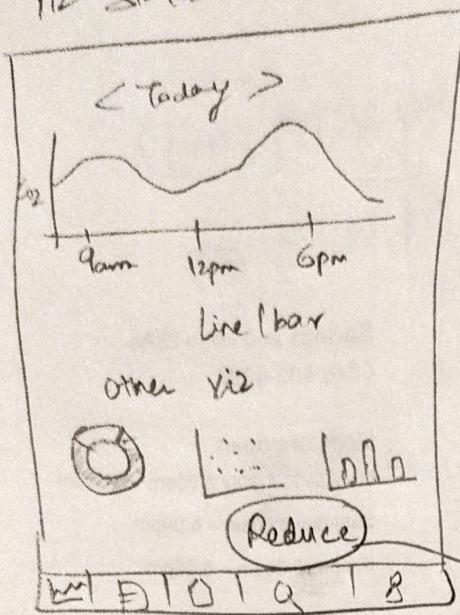 < Today >
CO2
9am 12pm 6pm
Line / bar
Other viz
Reduce